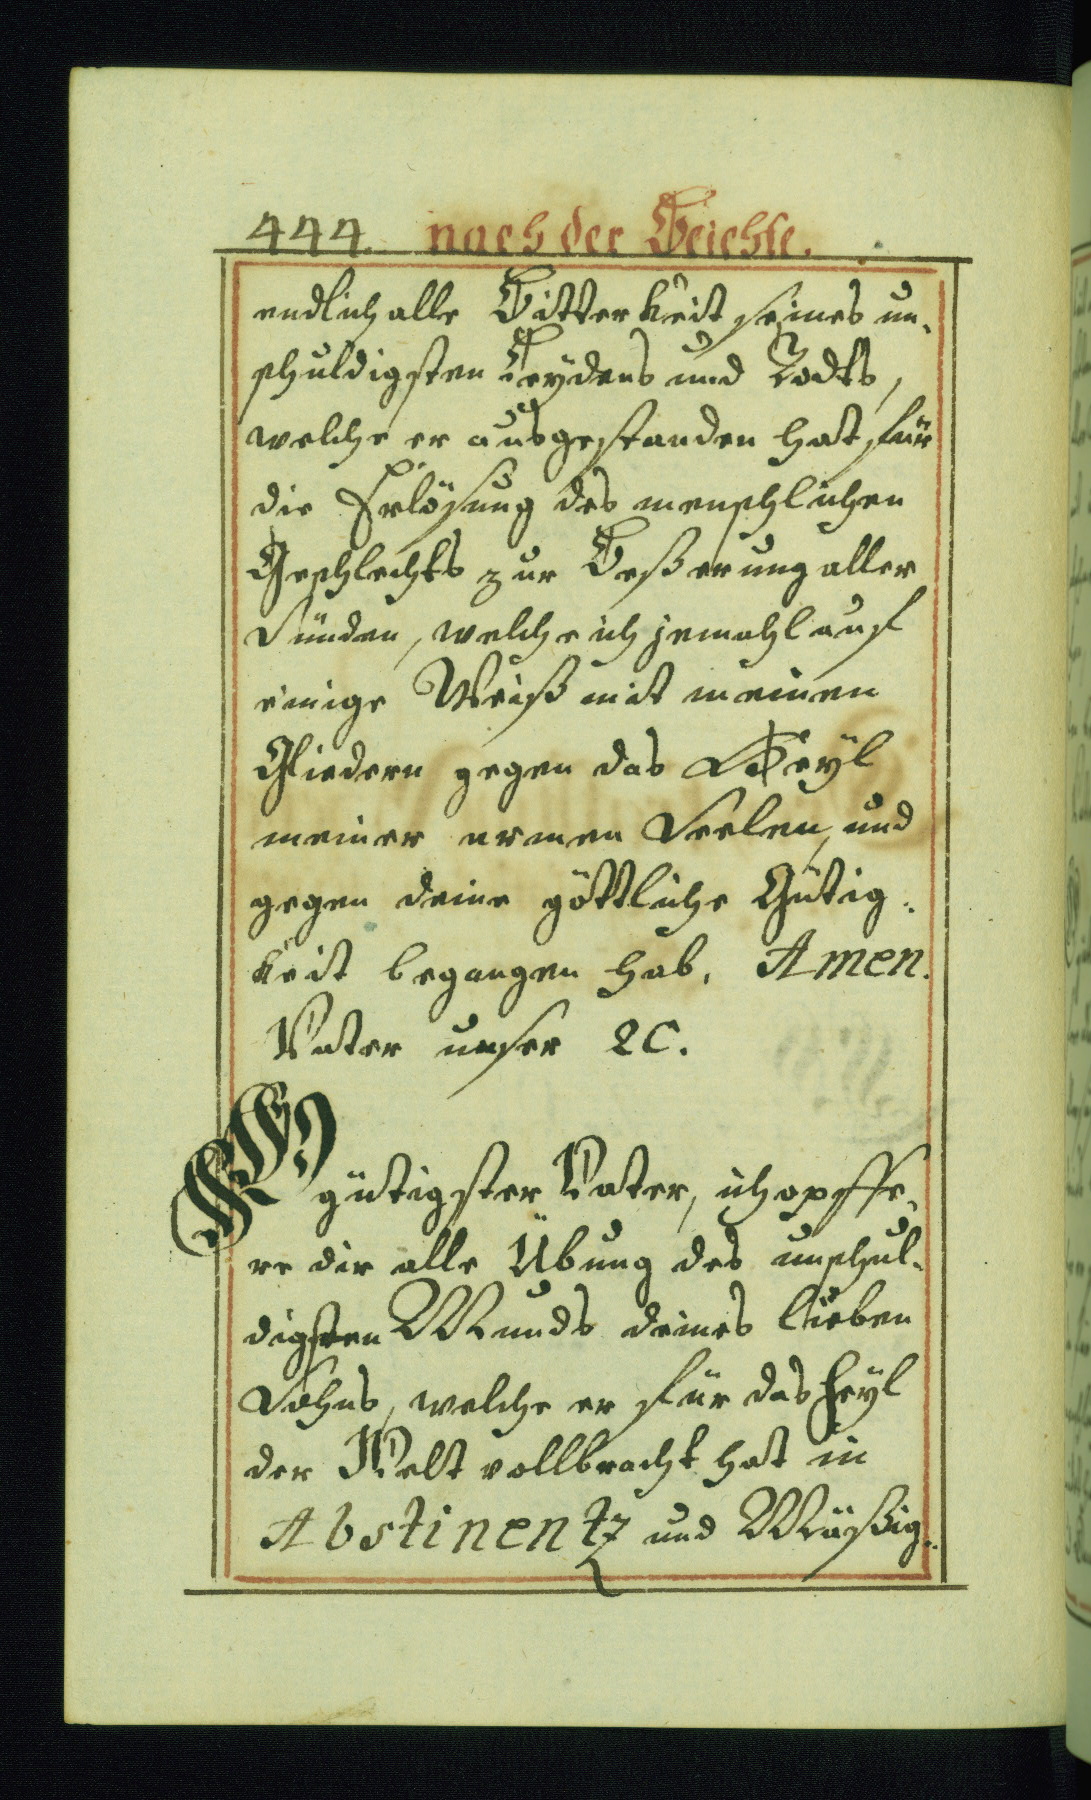 444. nach der Beichte.
endlich alle Bitterkeit seines un-
schuldigsten Leydens und Todts,
welche er ausgestanden hat für
die Erlösung des menschlichen
Geschlechts zur Beßerung aller
Sünden, welche ich jemahl auf
einige Weiß mit meinen
Gliedern gegen das Heyl
meiner armen Seelen, und
gegen deine göttliche Gütig-
keit begangen hab. Amen.
Vater unser ꝛc.
gütigster Vater, ich opffe-
re dir alle Übung des unschul-
digsten Munds deines lieben
Sohns, welche er für das Heyl
der Welt vollbracht hat in
Abstinentz und Mäßig-